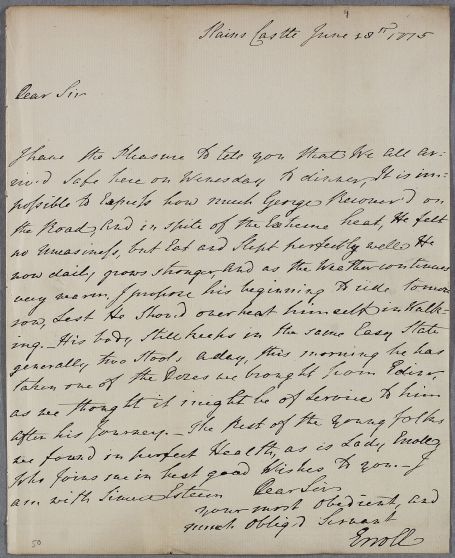 4
Slains Castle June 28th 1775
Dear Sir
I have the Pleasure to tell you that We all ar-
riv'd safe here on Wenesday to dinner, It is im-
possible to Express how much George Recover'd on
the Road, and in spite of the Extreme heat, He felt
no Uneasiness, but Eat and Slept perfectly well. He
now daily grows stronger, and as the Weather continues
very warm, I propose his beginning to ride tomor-
row, Lest He Shou'd overheat himself in Walk-
ing. – His body still keeps in the same Easy State
generally two Stools a day, this morning he has
taken one of the Dozes we brought from Edinr,
as we thought it might be of Service to him
after his Journey. – The Rest of the Young folks
we found in perfect Health, as is Lady Erroll
who Joins me in best good Wishes to you – I
am with Sincere Esteem Dear Sir
your most obedient, and
much Oblig'd Servant
Erroll
50